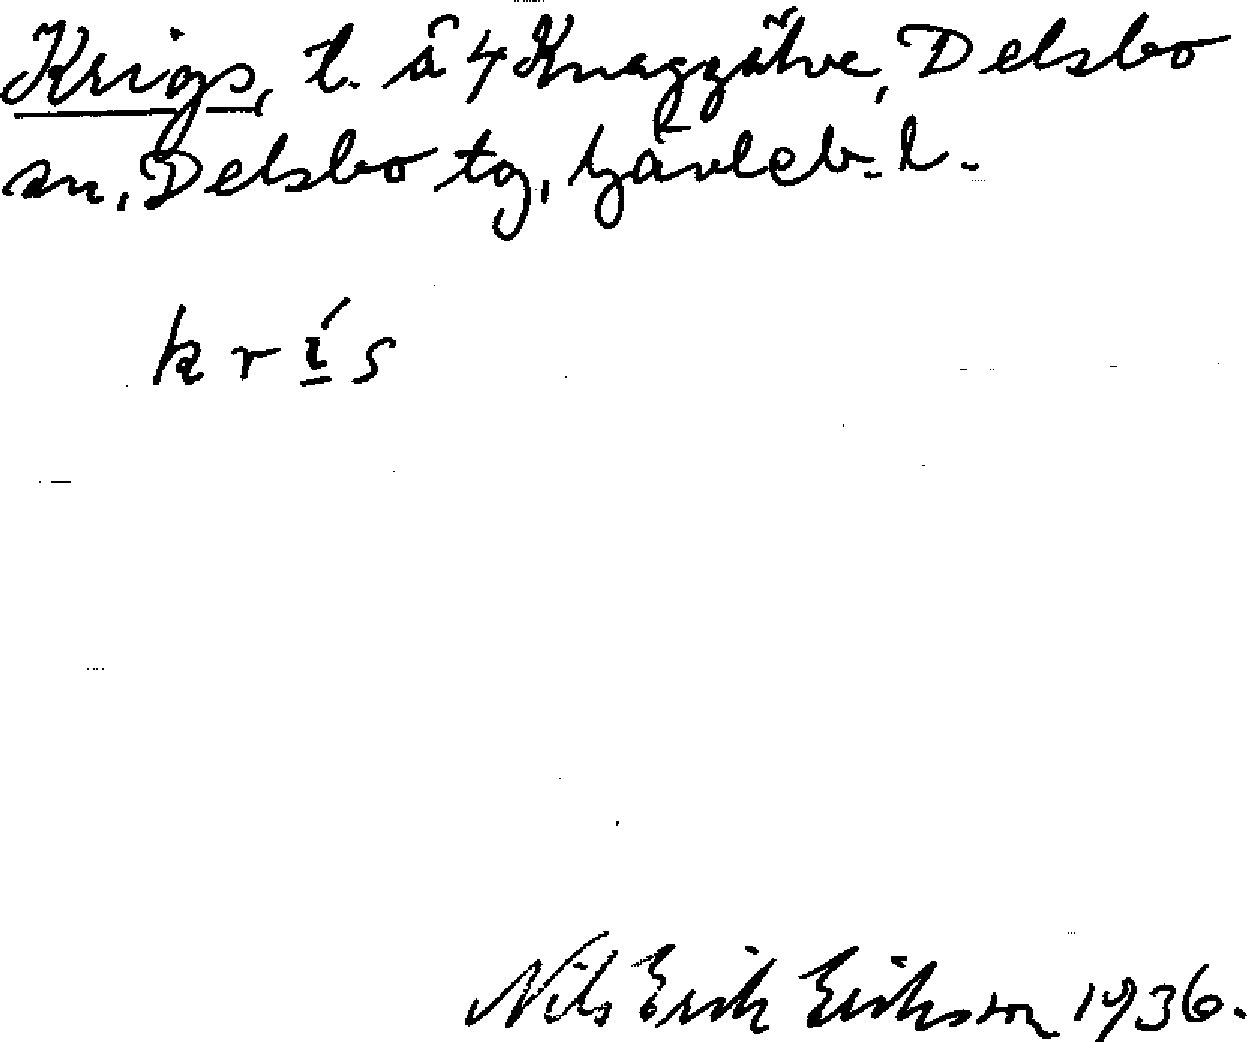 Krigs, t. å 4 Knaggälve, Delsbo
sn, Delsbo tg, Gävleb. l.
krís
Nils Erik Eriksson 1936.